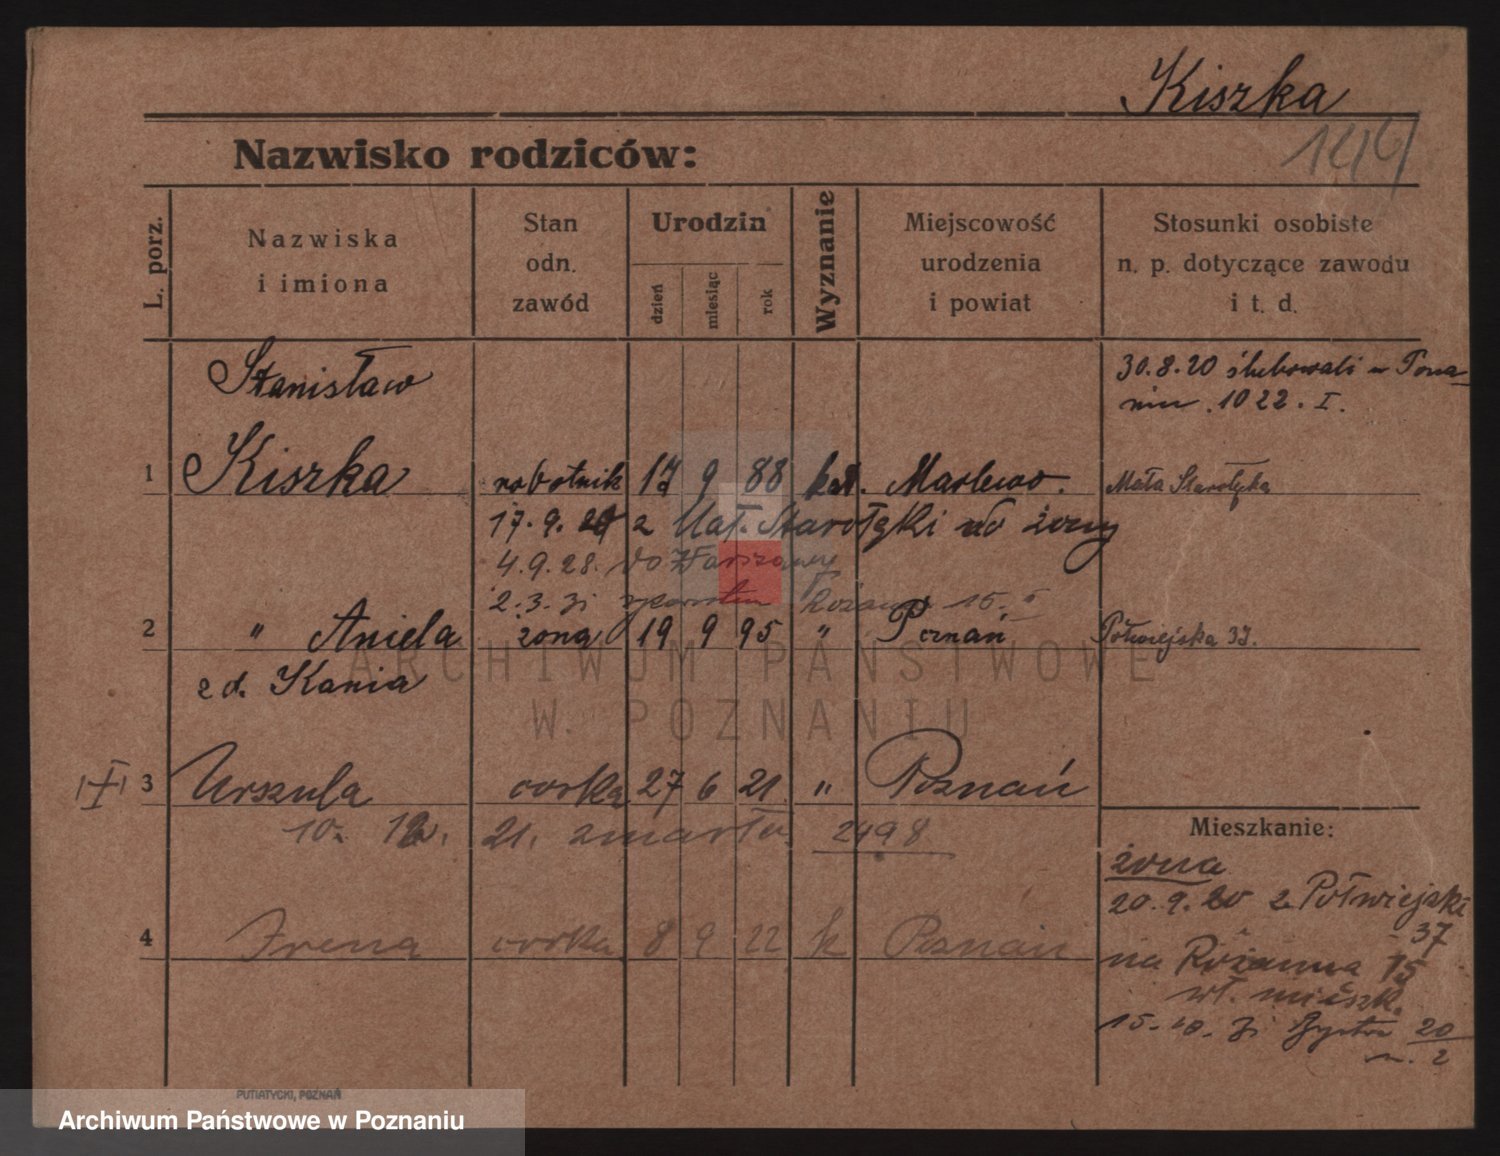 Kiszka
144
Nazwisko rodziców:
L. porz.
Nazwiska
i imiona
Stan
odn.
zawód
Urodzin
dzień
miesiąc
rok
Wyznanie
Miejscowość
urodzenia
i powiat
Stosunki osobiste
n. p. dotyczące zawodu
i t. d.
Stanisław
30.8.20 ślubowali w Pozna-
niu. 1022. I.
1 Kiszka robotnik 17 9 88 kat. Marlewo. Mała Starołęka
17. 9. 20 z Mał. Starołęki do żony
4.9.28. do Warszawy
2.3.31 z powrotem Różana 15.
2 " Aniela żona 19 9 95 " Poznań Półwiejska 37.
z d. Kania
3 Urszula corka 27 6 21. " Poznań
10. 12. 21. zmarła. 2498.
Mieszkanie:
żona
20.9.20 z Półwiejski
37
4 Irena corka 8 9 22 k Poznań
na Różanna 15
wł. mieszk.
15. 10. 31 Bystra 20
m. 2
PUTIATYCKI, POZNAŃ
ARCHIWUM PAŃSTWOWE
W POZNANIU
Archiwum Państwowe w Poznaniu